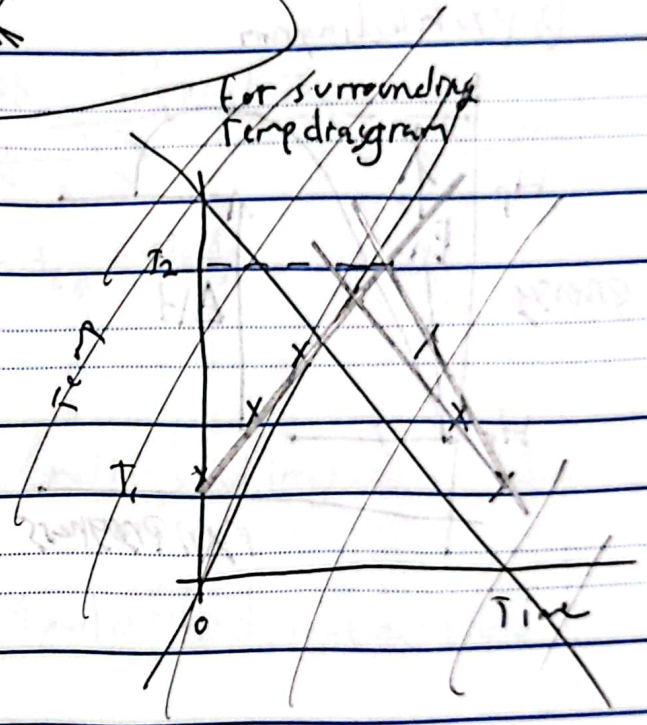 For surrounding
Temp diasgram
T2
Temp
T1
0
Time